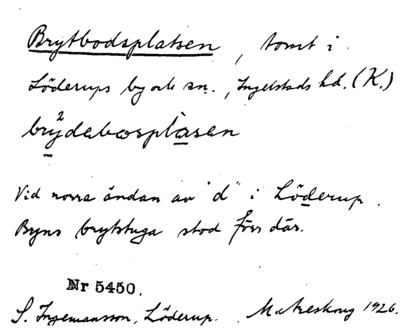 Brytbodsplatsen, tomt i
Löderups by och sn., Ingelstads hd. (K.)
brydebosplasen
Vid norra ändan av "d" i Löderup.
Byns brytstuga stod förr där.
Nr 5450.
S. Ingemansson, Löderup. 1926.